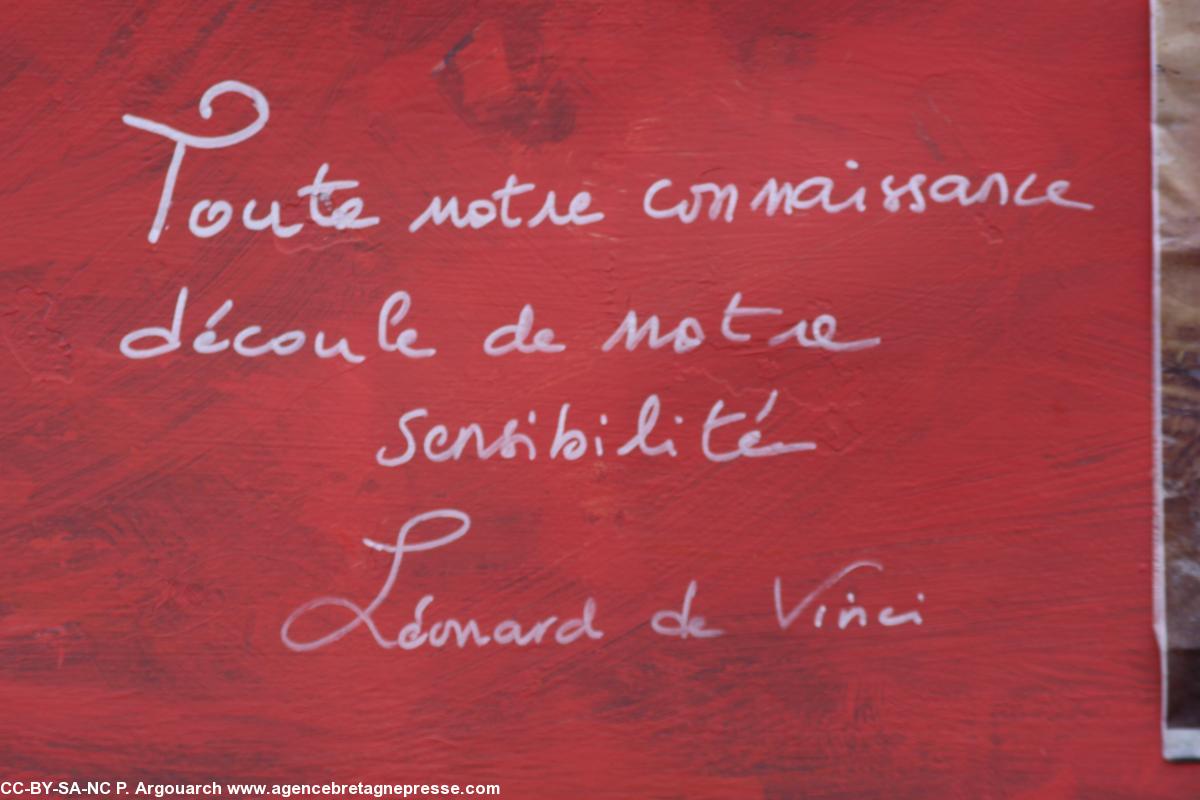 Toute notre connaissance
découle de notre
sensibilité
Léonard de Vinci
CC-BY-SA-NC P. Argouarch www.agencebretagnepresse.com